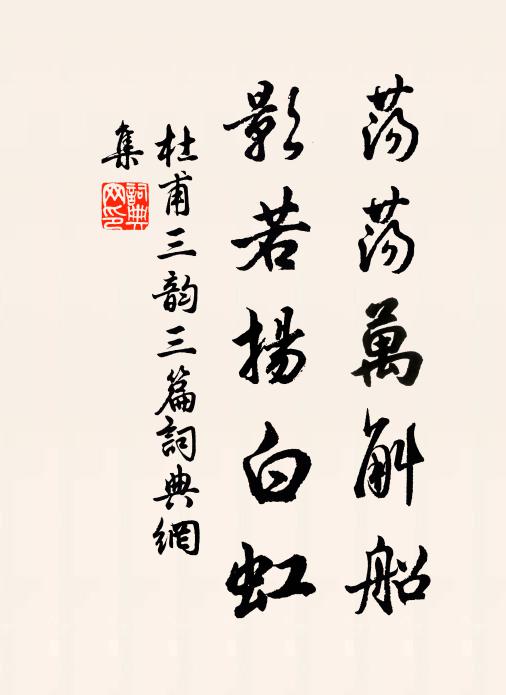 蕩蕩萬斛船
影若揚白虹
杜甫三韵三篇詞典網
集
詞典
网印